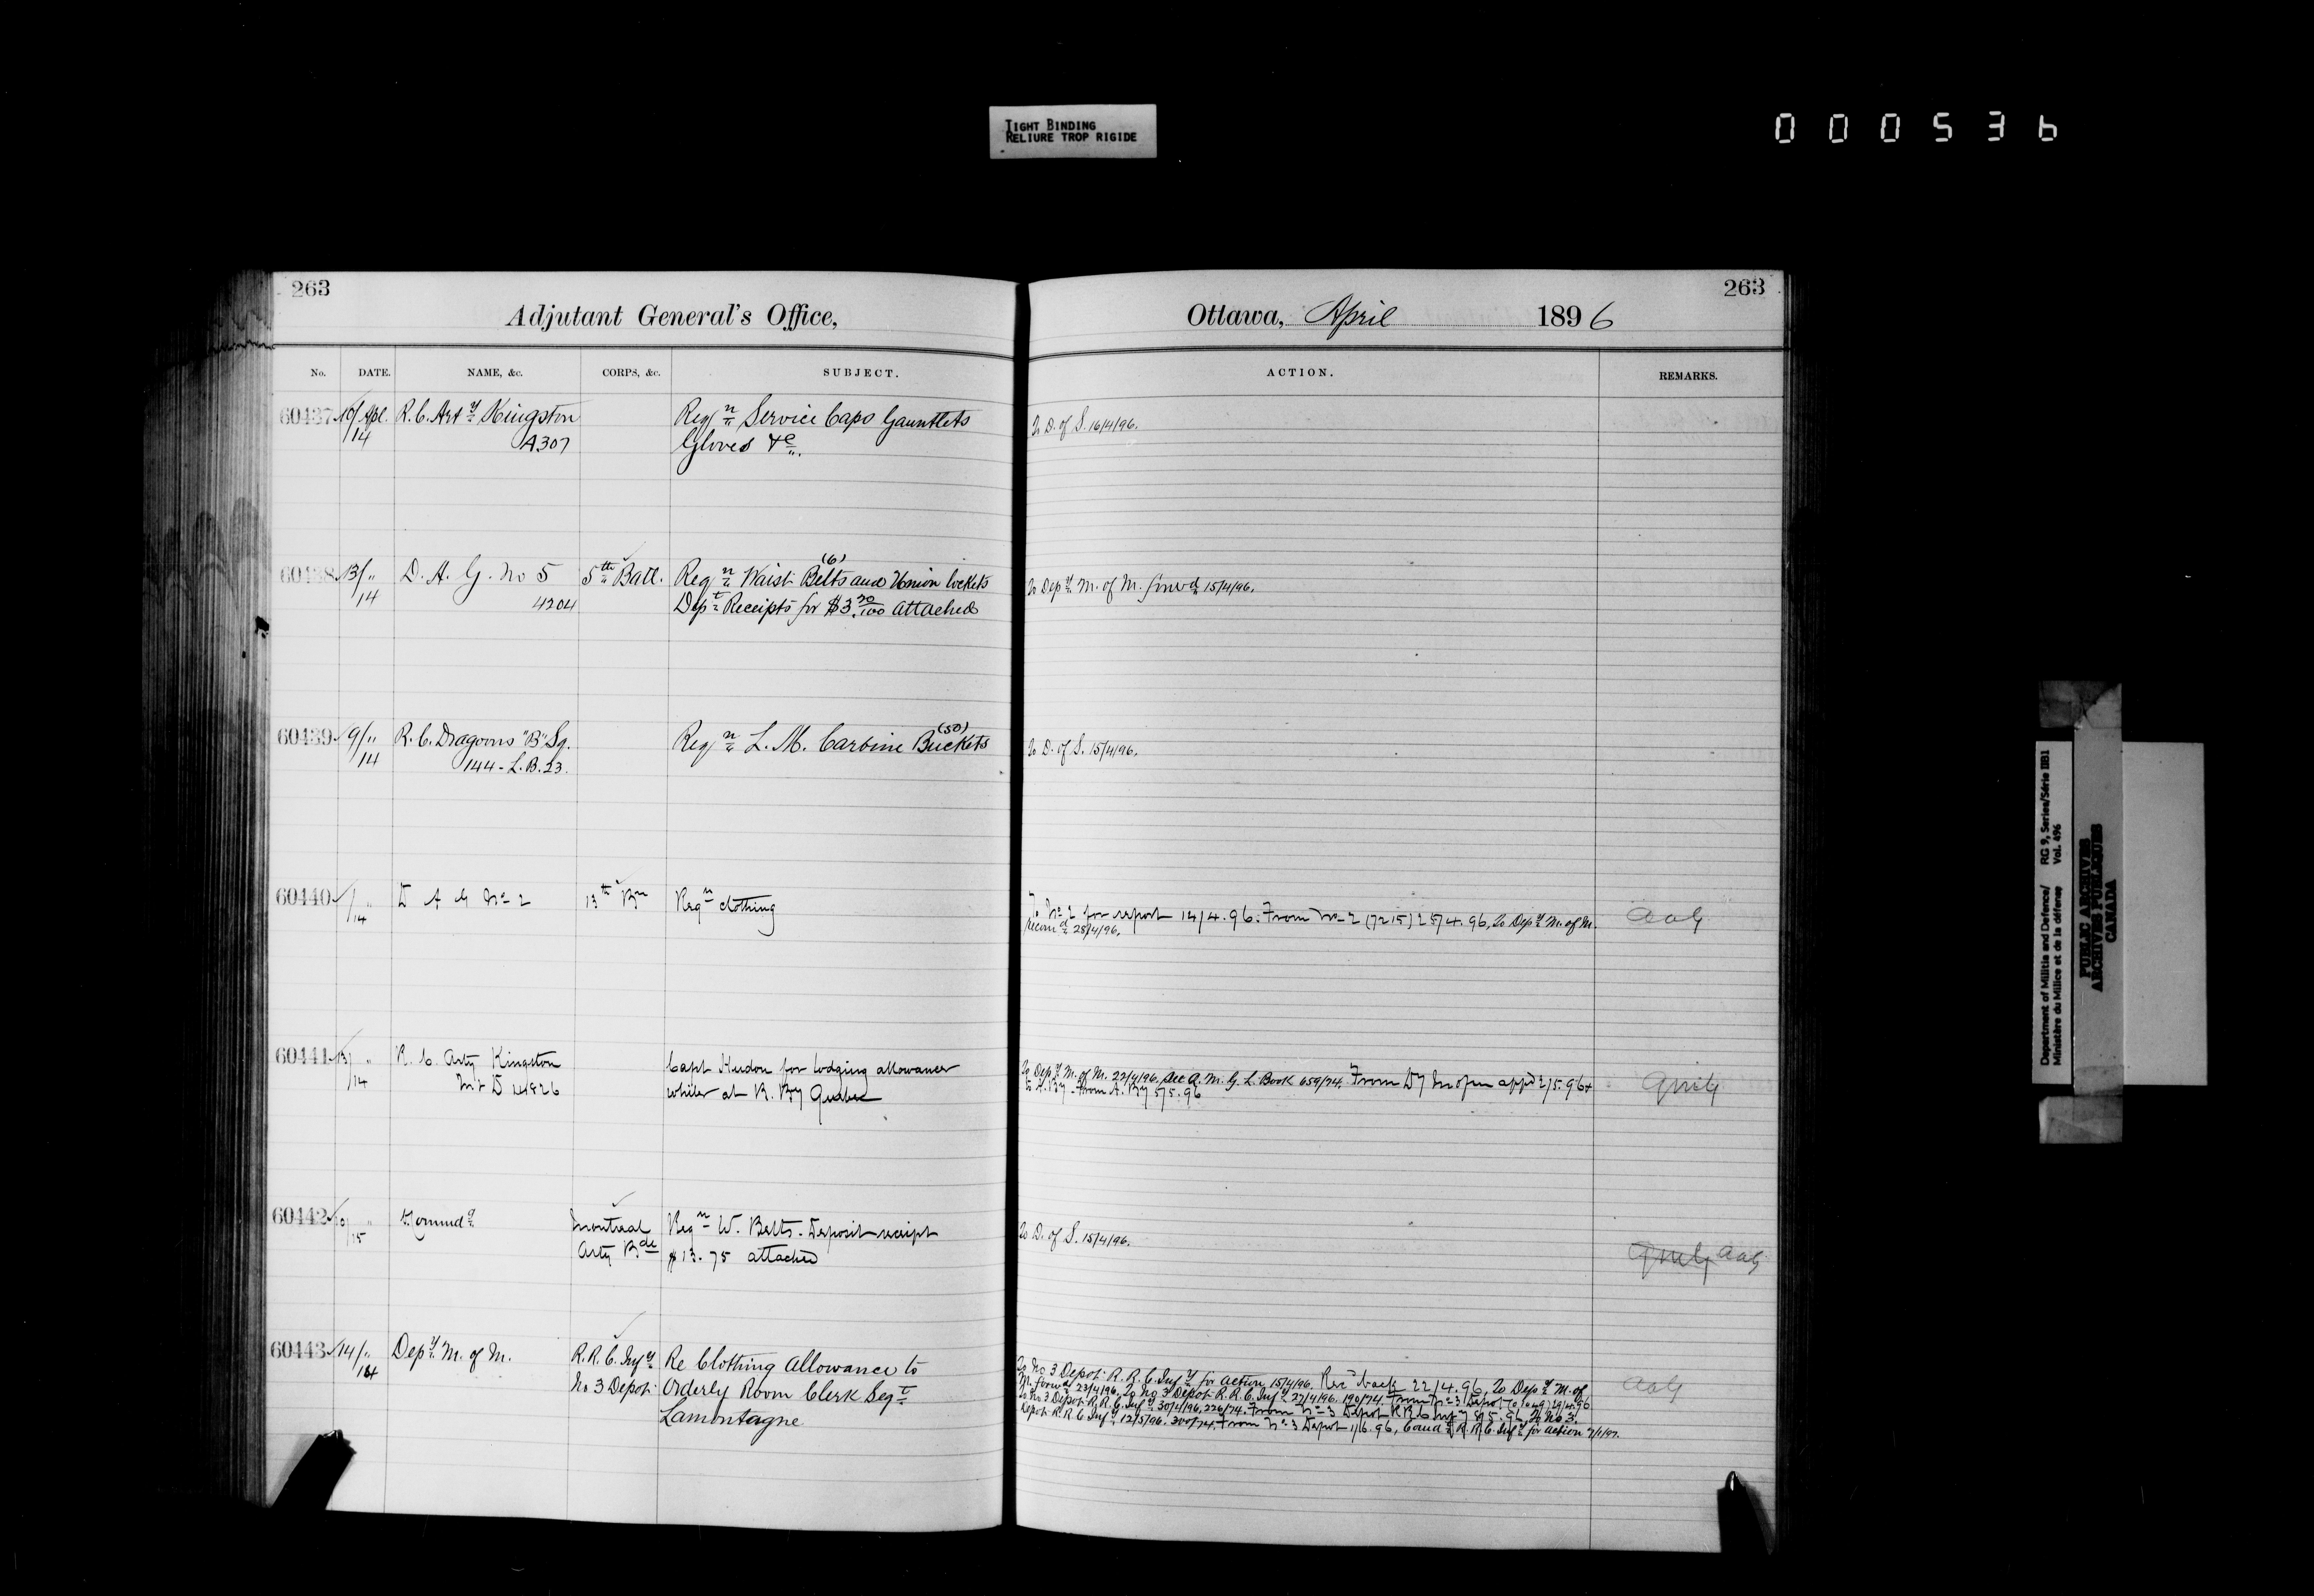 TIGHT BINDING
RELIURE TROP RIGIDE
000536
263
Adjutant General's Office,
No. DATE. NAME, &c. CORPS, &c. SUBJECT.
60437 10/14 Apl. R. C. Arty Kingston Reqn Service Caps Gauntlets
A307 Gloves &c.
60438 13/14 " D. A. G. No 5 5th Batt. Reqn Waist Belts (6) and Union lockets
4204 Dept Receipts for $3 70/100 attached
60439 9/14 " R. C. Dragoons "B" Sq. Reqn L. M. Carbine Buckets (50)
144 - L. B. 23.
60440 /14 " D A G No 2 13th Bn Reqn clothing
60441 13/14 " R. C. Arty Kingston Capt Hudon for lodging allowance
4826 while at R. By Quebec
60442 10/15 " Montreal Reqn W. Belts. Deposit receipt
Arty Bde $13.75 attached
60443 14/14 " Depy M. of M. R. R. C. Infy Re Clothing Allowance to
No 3 Depot Orderly Room Clerk Segt
Lamontagne
263
Ottawa, April 1896
ACTION. REMARKS.
To D. of S. 16/4/96.
To Depy M. of M. forwd 15/4/96.
To D. of S. 15/4/96.
To No 2 for report 14/4.96. From No 2 (7215) 25/4.96, To Depy M. of M. AAG
recomd 28/4/96.
To Depy M. of M. 22/4/96. See Q. M. G. L. Book 659/74. From Dy M of M appd 2/5.96 & QMG
From A. By 5/5.96
To D. of S. 15/4/96.
QMG AAG
To No 3 Depot R. R. C. Infy for action 15/4/96. Recd back 22/4.96, To Depy M. of AAG
M. forwd 22/4/96. To No 3 Depot R. R. C. Infy 27/4/96. 190/74. From No 3 Depot
To No 3 Depot R. R. C. Infy 30/4/96. 226/74. From No 3 Depot R R C Infy 5/5.96, To No 3
Depot R. R. C. Infy 12/5/96. 300/74. From No 3 Depot 1/6.96, R. R. C. Infy for action
Department of Militia and Defence/ RG 9, Series/Série IIB1
Ministère du Milice et de la défense Vol. 496
PUBLIC ARCHIVES
ARCHIVES PUBLIQUES
CANADA